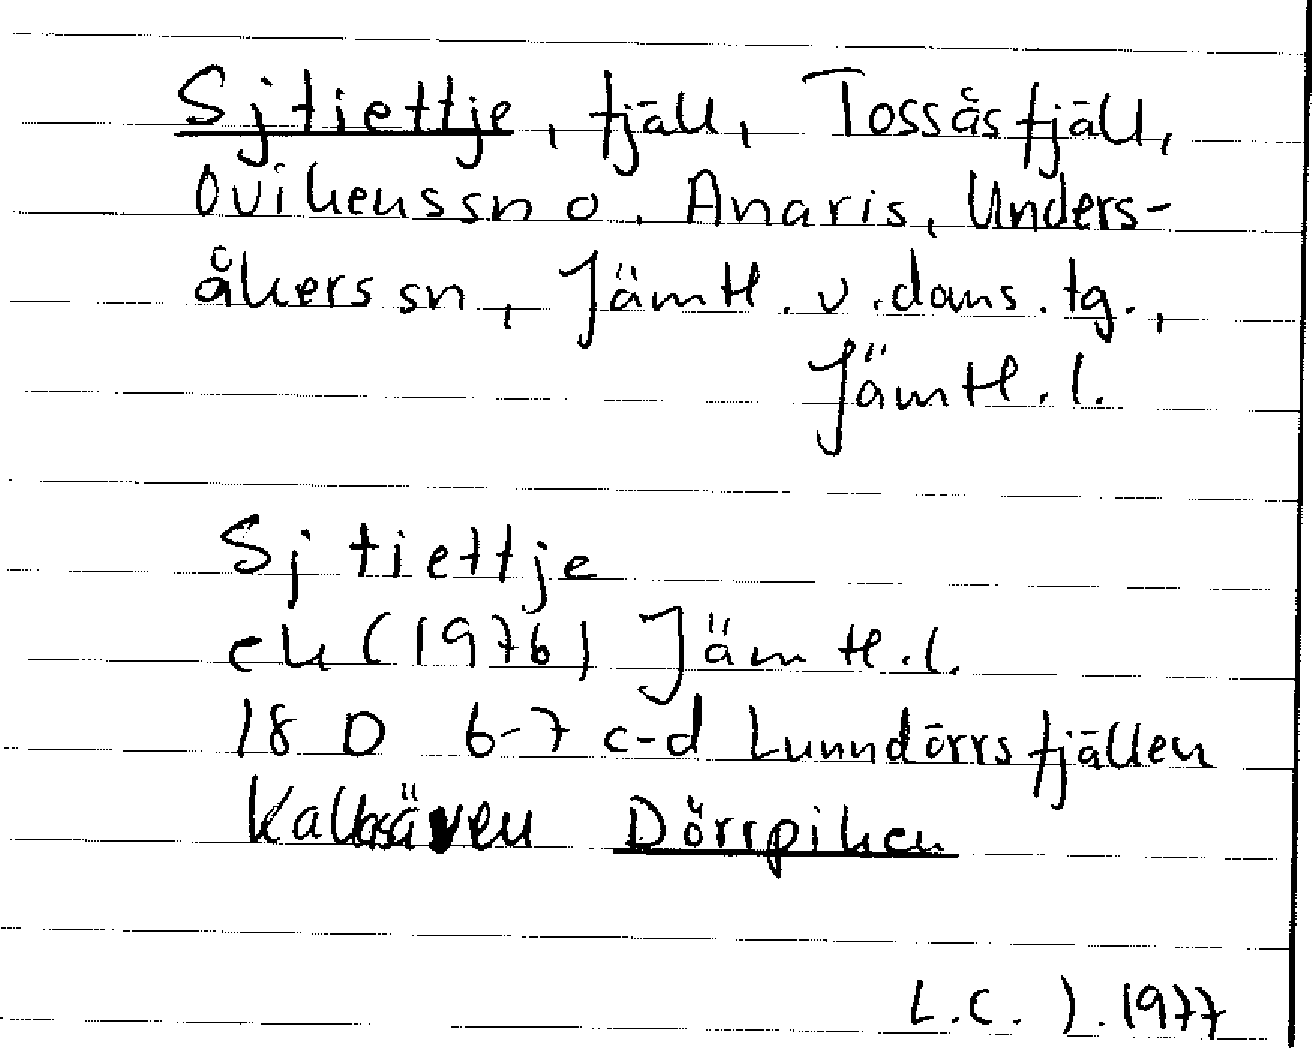 Sjtiettje, fjäll, Tossåsfjäll,
Ovikenssn o. Anaris, Unders-
åkers sn, Jämtl. v. doms. tg.,
Jämtl. l.
Sjtiettje
ek (1976) Jämtl. l.
18 D 6-7 c-d Lunndörrsfjällen
Dörrpiken
L.C. J. 1977